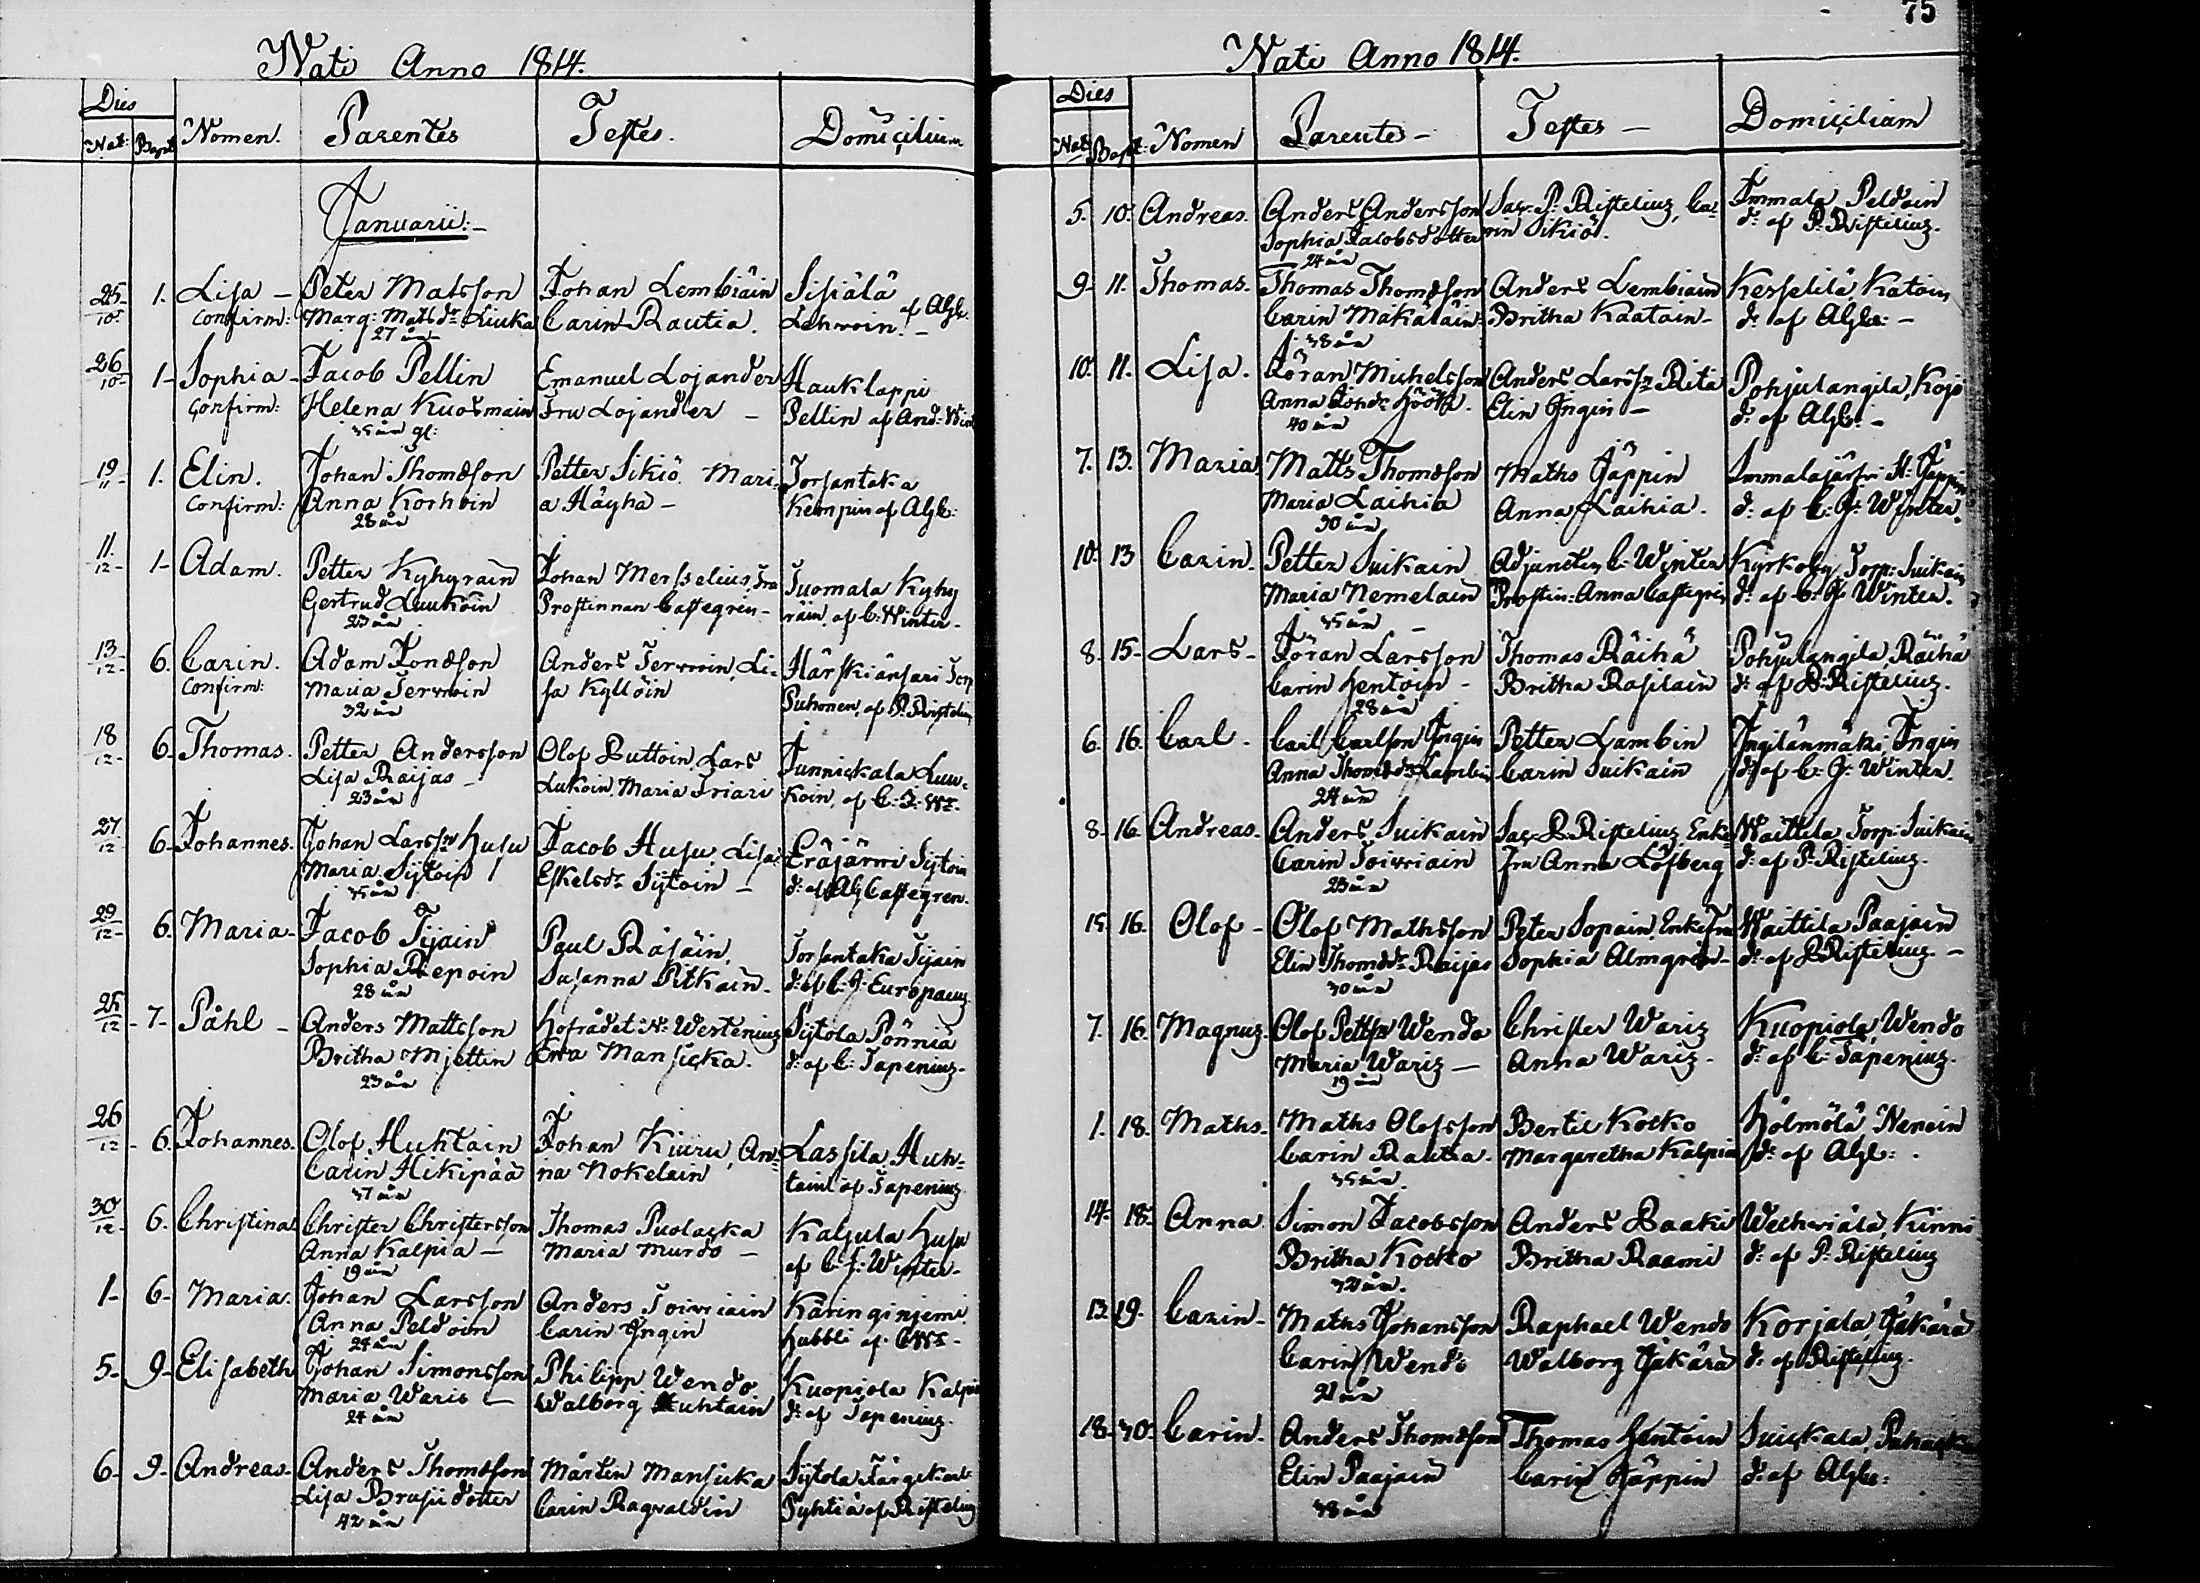 75
Nati Anno 1814.
Dies
Nat: Bapt: Nomen. Parentes Testes. Domicilium
Januarii:-
25/10 1. Lisa - Peter Matsson Johan Lembiäin Sisiälä
Confirm: Marg: Matsdr Liuka Carin Rautia. Lehwoin. af Algb. -
27 år
26/10 1- Sophia - Jacob Pellin Emanuel Lojander Hauklappi
Confirm: Helena Kuosmain Fru Lojander - Pellin af And: Wint
35 år gl:
19/11 1. Elin. Johan Thomsson Petter Sikiö Mari- Torsantaka
Confirm: Anna Korhoin a Häyhä - Kempin af Algb:
28 år
11/12 1- Adam. Petter Kyhyräin Johan Messelius, Fru Tuomala Kyhy
Gertrud Luukoin Prostinnan Castegren - räin, af C: Winter -
23 år
13/12 6. Carin. Adam Jonsson Anders Terwoin, Li- Härskiänsari Torp
Confirm: Maria Terwoin sa Kyllöin Puhonen, af P. Ristelius
32 år
18/12 6- Thomas. Petter Andersson Olof Buttoin, Lars Junnickala Luu-
Lisa Raijas - Lukoin, Maria Friari koin, af C: J: Wr.
23 år
27/12 6- Johannes. Johan Larssn Husu Jacob Husu, Lisa Eräjärwi Sijtoin
Maria Sijtoin Eskelsdr Sijtoin - d: af Alg Castegren.
35 år
29/12 6. Maria - Jacob Tijain Paul Räsäin, Torsantaka Tijain
Sophia Repoin Susanna Pitkäin - d: af C: J: Europaeus
28 år
25/12 - 7 - Påhl - Anders Mattsson Hofrådet N: Westenius Sijtola Pönniä
Britha Mjettin Ewa Mansicka. d: af C: Tapenius -
23 år
26/12 - 6. Johannes. Olof Huhtain Johan Kiuru, An- Lassila, Huh-
Carin Hikipää na Nokelain tain af Tapenius
37 år
30/12 6. Christina Christer Christersson Thomas Puolacka Kaljula Husu
Anna Kalpia - Maria Murdo - af C: J: Winter -
19 år
1- 6- Maria. Johan Larsson Anders Toiwiain Käringinjemi
Anna Peldoin Carin Ingin Hubbli af CWr. -
24 år
5- 9- Elisabeth Johan Simonsson Philipp Wendo Kuopiola Kalpia
Maria Waris - Walborg Huhtain d: af Tapenius.
24 år
6- 9- Andreas - Anders Thomsson Mårten Mansicka Sijtola Färgekarls
Lisa Brusii dotter Carin Ragvaldin Pyhtiä af Ristelius
42 år
Nati Anno 1814.
Dies
Nat: Bapt: Nomen Parentes - Testes - Domicilium
5. 10. Andreas. Anders Andersson Sac. P. Ristelius, Ca- Immala Peldoin
Sophia Jacobsdotter rin Sikiö. d: af P: Ristelius.
24 år
9- 11. Thomas. Thomas Thomsson Anders Lembiäin Kesselilä Katoin
Carin Mäkäläin Britha Kaatain - d: af Algb: -
38 år
10. 11. Lisa. Jöran Michelsson Anders Larssn Rita Pohjulangila, Kojo
Anna Höök. Elin Ingin - d: af Algb: -
40 år
7. 13. Maria Matts Thomsson Maths Jäppin Immalajärwi H: Jäppin
Maria Laihia Anna Laihia. d: af C: J: Winter.
30 år
10. 13 Carin. Petter Suikain Adjuncten C: Winter Kyrkoby Torp: Suikain
Maria Nemelain Prostin: Anna Castegren d: af C: J: Winter.
35 år
8. 15 - Lars - Jöran Larsson Thomas Räihä Pohjulangila, Räihä
Carin Hentoin - Britha Rasilain d: af P: Ristelius.
28 år
6. 16. Carl. Carl Carlson Ingin Petter Lambin Ingilänmäki Ingin
Anna Thomsdr Lambin Carin Suikain d: af C: J: Winter.
24 år
8- 16. Andreas. Anders Suikain Sac. P. Ristelius Enke Waittila Torp: Suikain
Carin Toiwiain Fru Anna Löfberg d: af P: Ristelius.
23 år
15 16. Olof - Olof Mathsson Peter Sopain, EnkeFru Waittila Paajain
Elin Thomsdr Raijas Sophia Almgren - d: af P Ristelius. -
30 år
7. 16. Magnus. Olof Pettsn Wendo Christer Waris Kuopiola, Wendo
Maria Waris - Anna Waris. d: af C: Tapenius.
19 år
1. 18. Maths - Maths Olofsson Bertil Kocko Holmölä Neroin
Carin Rautia. Margaretha Kalpia d: af Algb: .
35 år.
14. 18. Anna Simon Jacobsson Anders Raaki Wechwiälä, Kinni
Britha Kocko Britha Raami d: af P: Ristelius
32 år.
12 19. Carin - Maths Johansson Raphael Wendo Korjala, Jäkärä
Carin Wendo Walborg Jäkärä d: af Ristelius.
21 år
18. 30. Carin. Anders Thomsson Thomas Hentoin Suickala,
Elin Paajain Carin Jäppin d: af Algb:
38 år